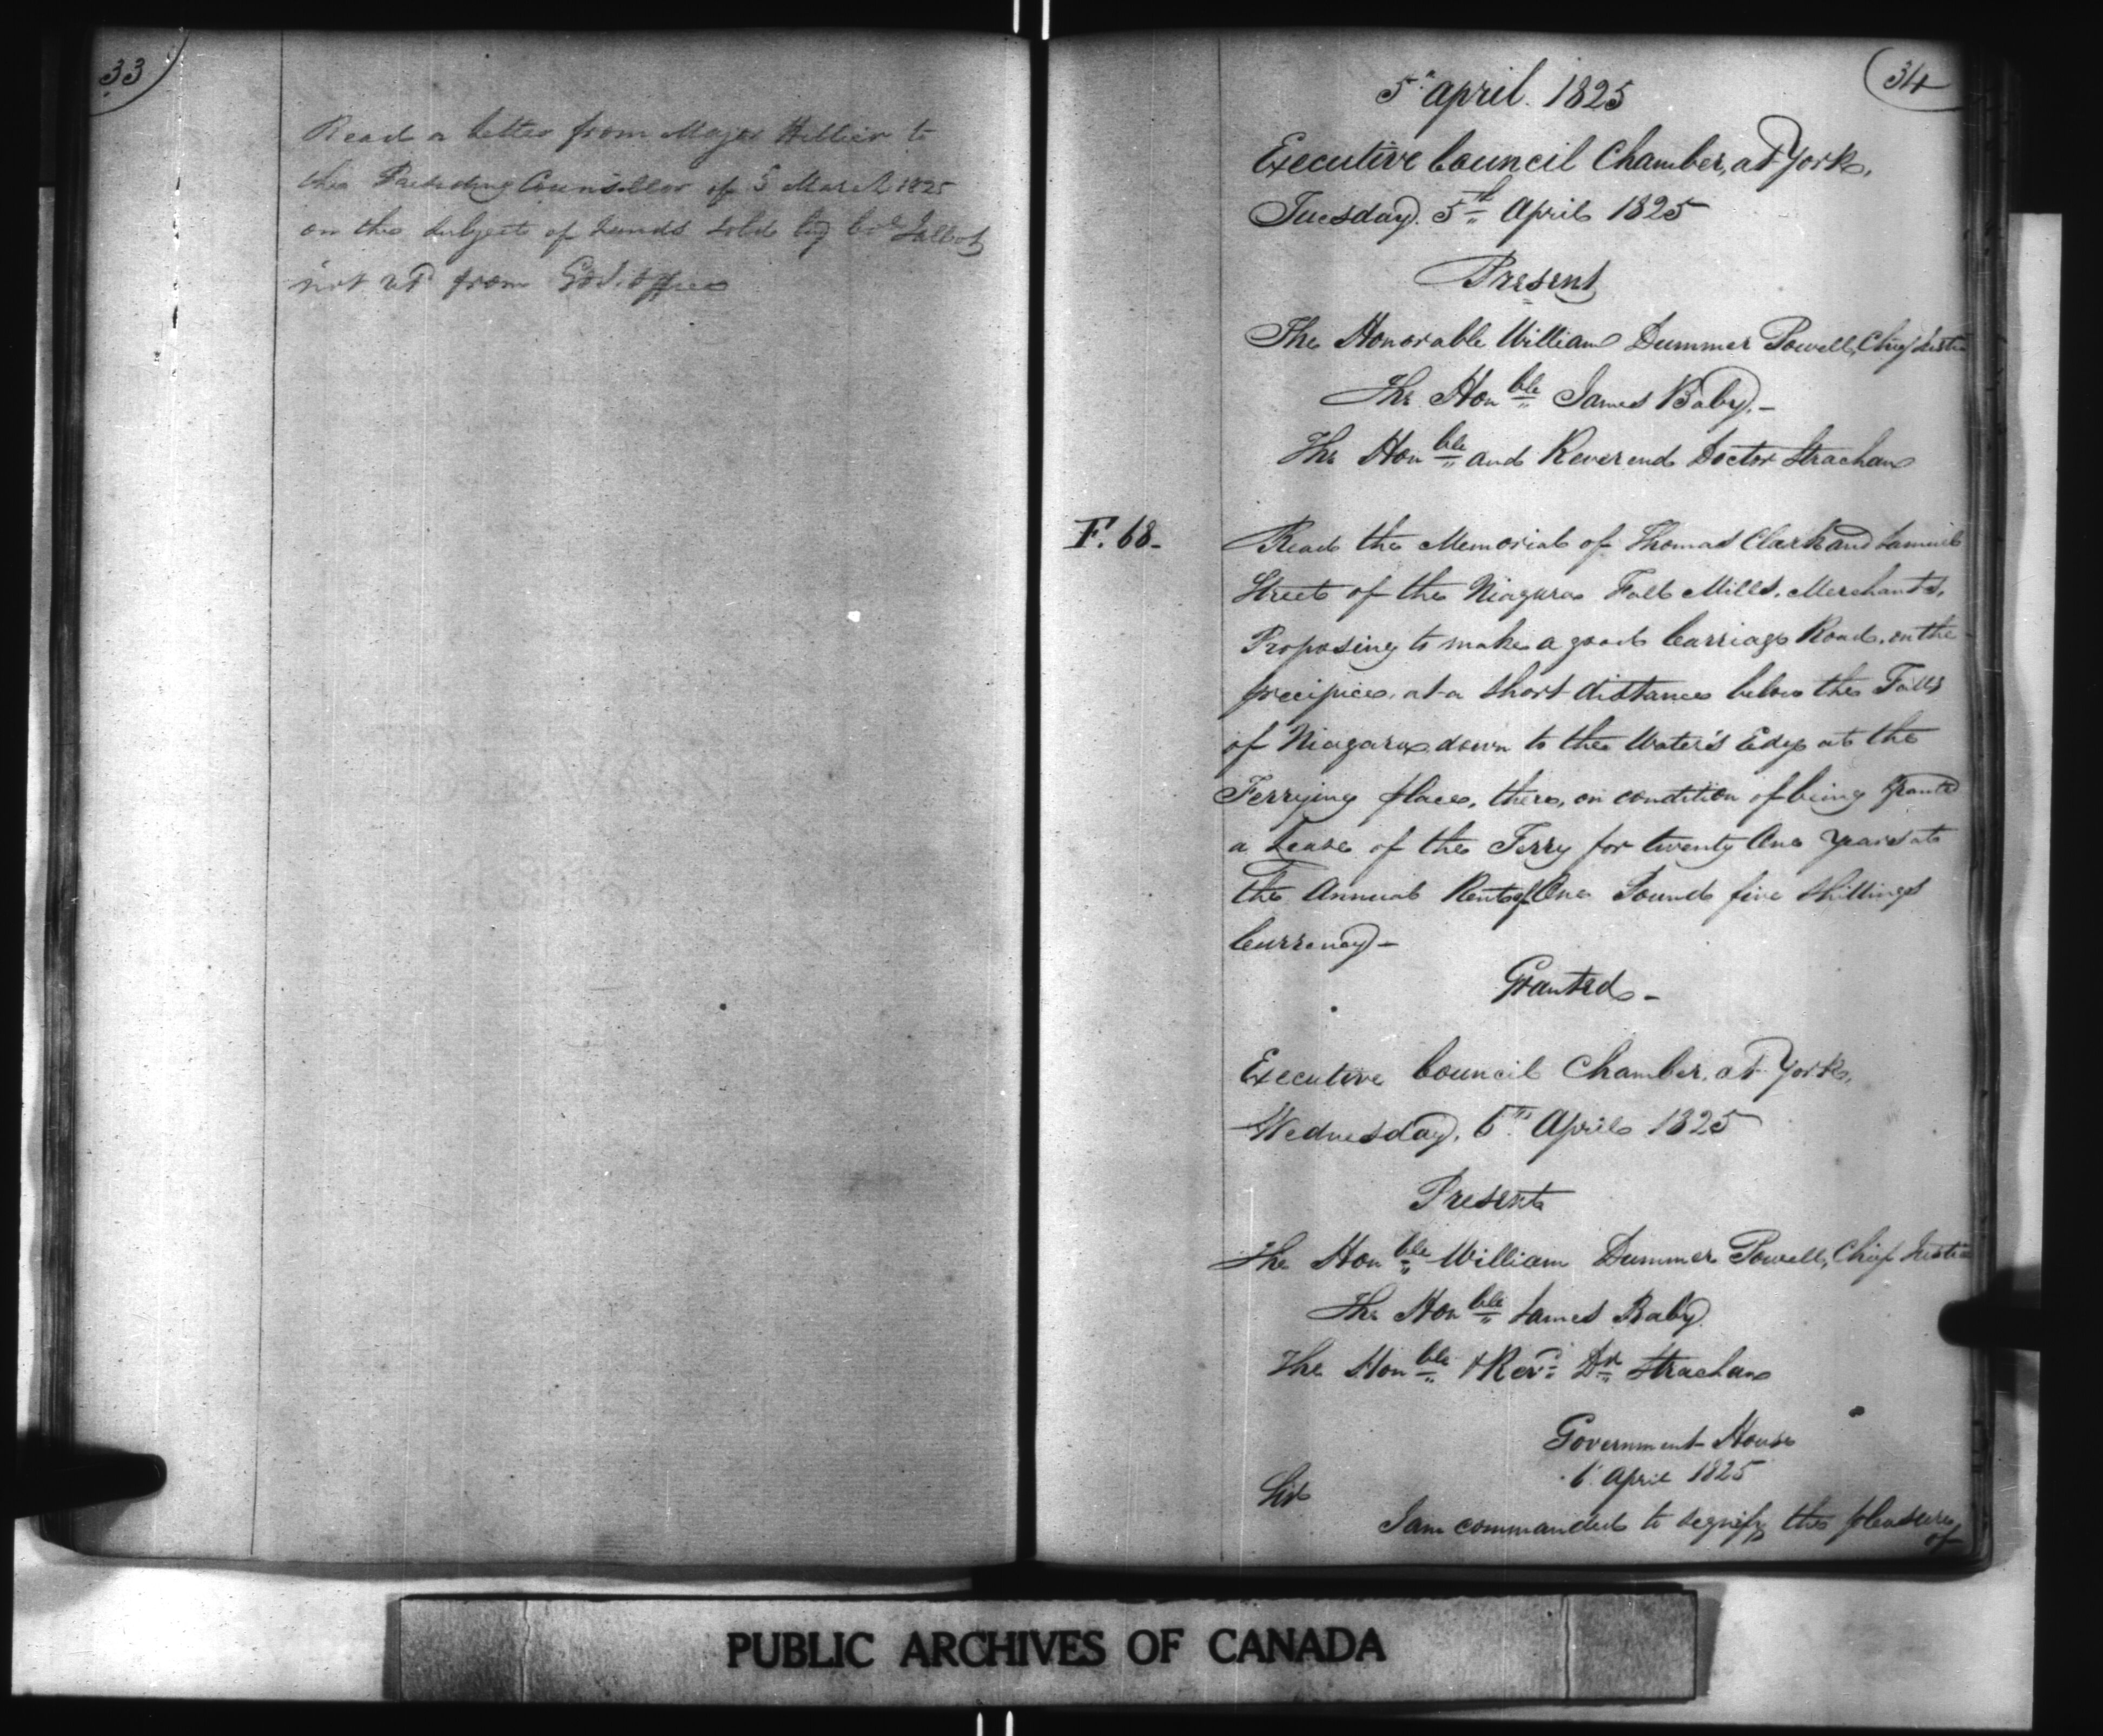 33
Read a letter from Major Hillier to
the Presiding Counsellor of 5 March 1825
on the Subject of Lands sold by Col Talbot
not rd from Gov. office
34
5th April. 1825
Executive Council Chamber, at York,
Tuesday. 5th April 1825
Present
The Honorable William Dummer Powell, Chief Justice
The Honble James Baby. -
The Honble and Reverend Doctor Strachan
F. 68-
Read the Memorial of Thomas Clark and Samuel
Street of the Niagara Fall Mills. Merchants,
Proposing to make a good Carriage Road, on the
precipice, at a short distance below the Falls
of Niagara, down to the Water's Edge at the
Ferrying place, there, on condition of being Granted
a Lease of the Ferry for twenty One Years at
the Annual Rent of One Pound five Shillings
Currency -
Granted -
Executive Council Chamber, at York,
Wednesday, 6th April 1825
Present
The Honble William Dummer Powell, Chief Justice
The Honble James Baby
The Honble & Revd Dr Strachan
Government House
6 April 1825
Sir
I am commanded to signify the pleasure
of
PUBLIC ARCHIVES OF CANADA